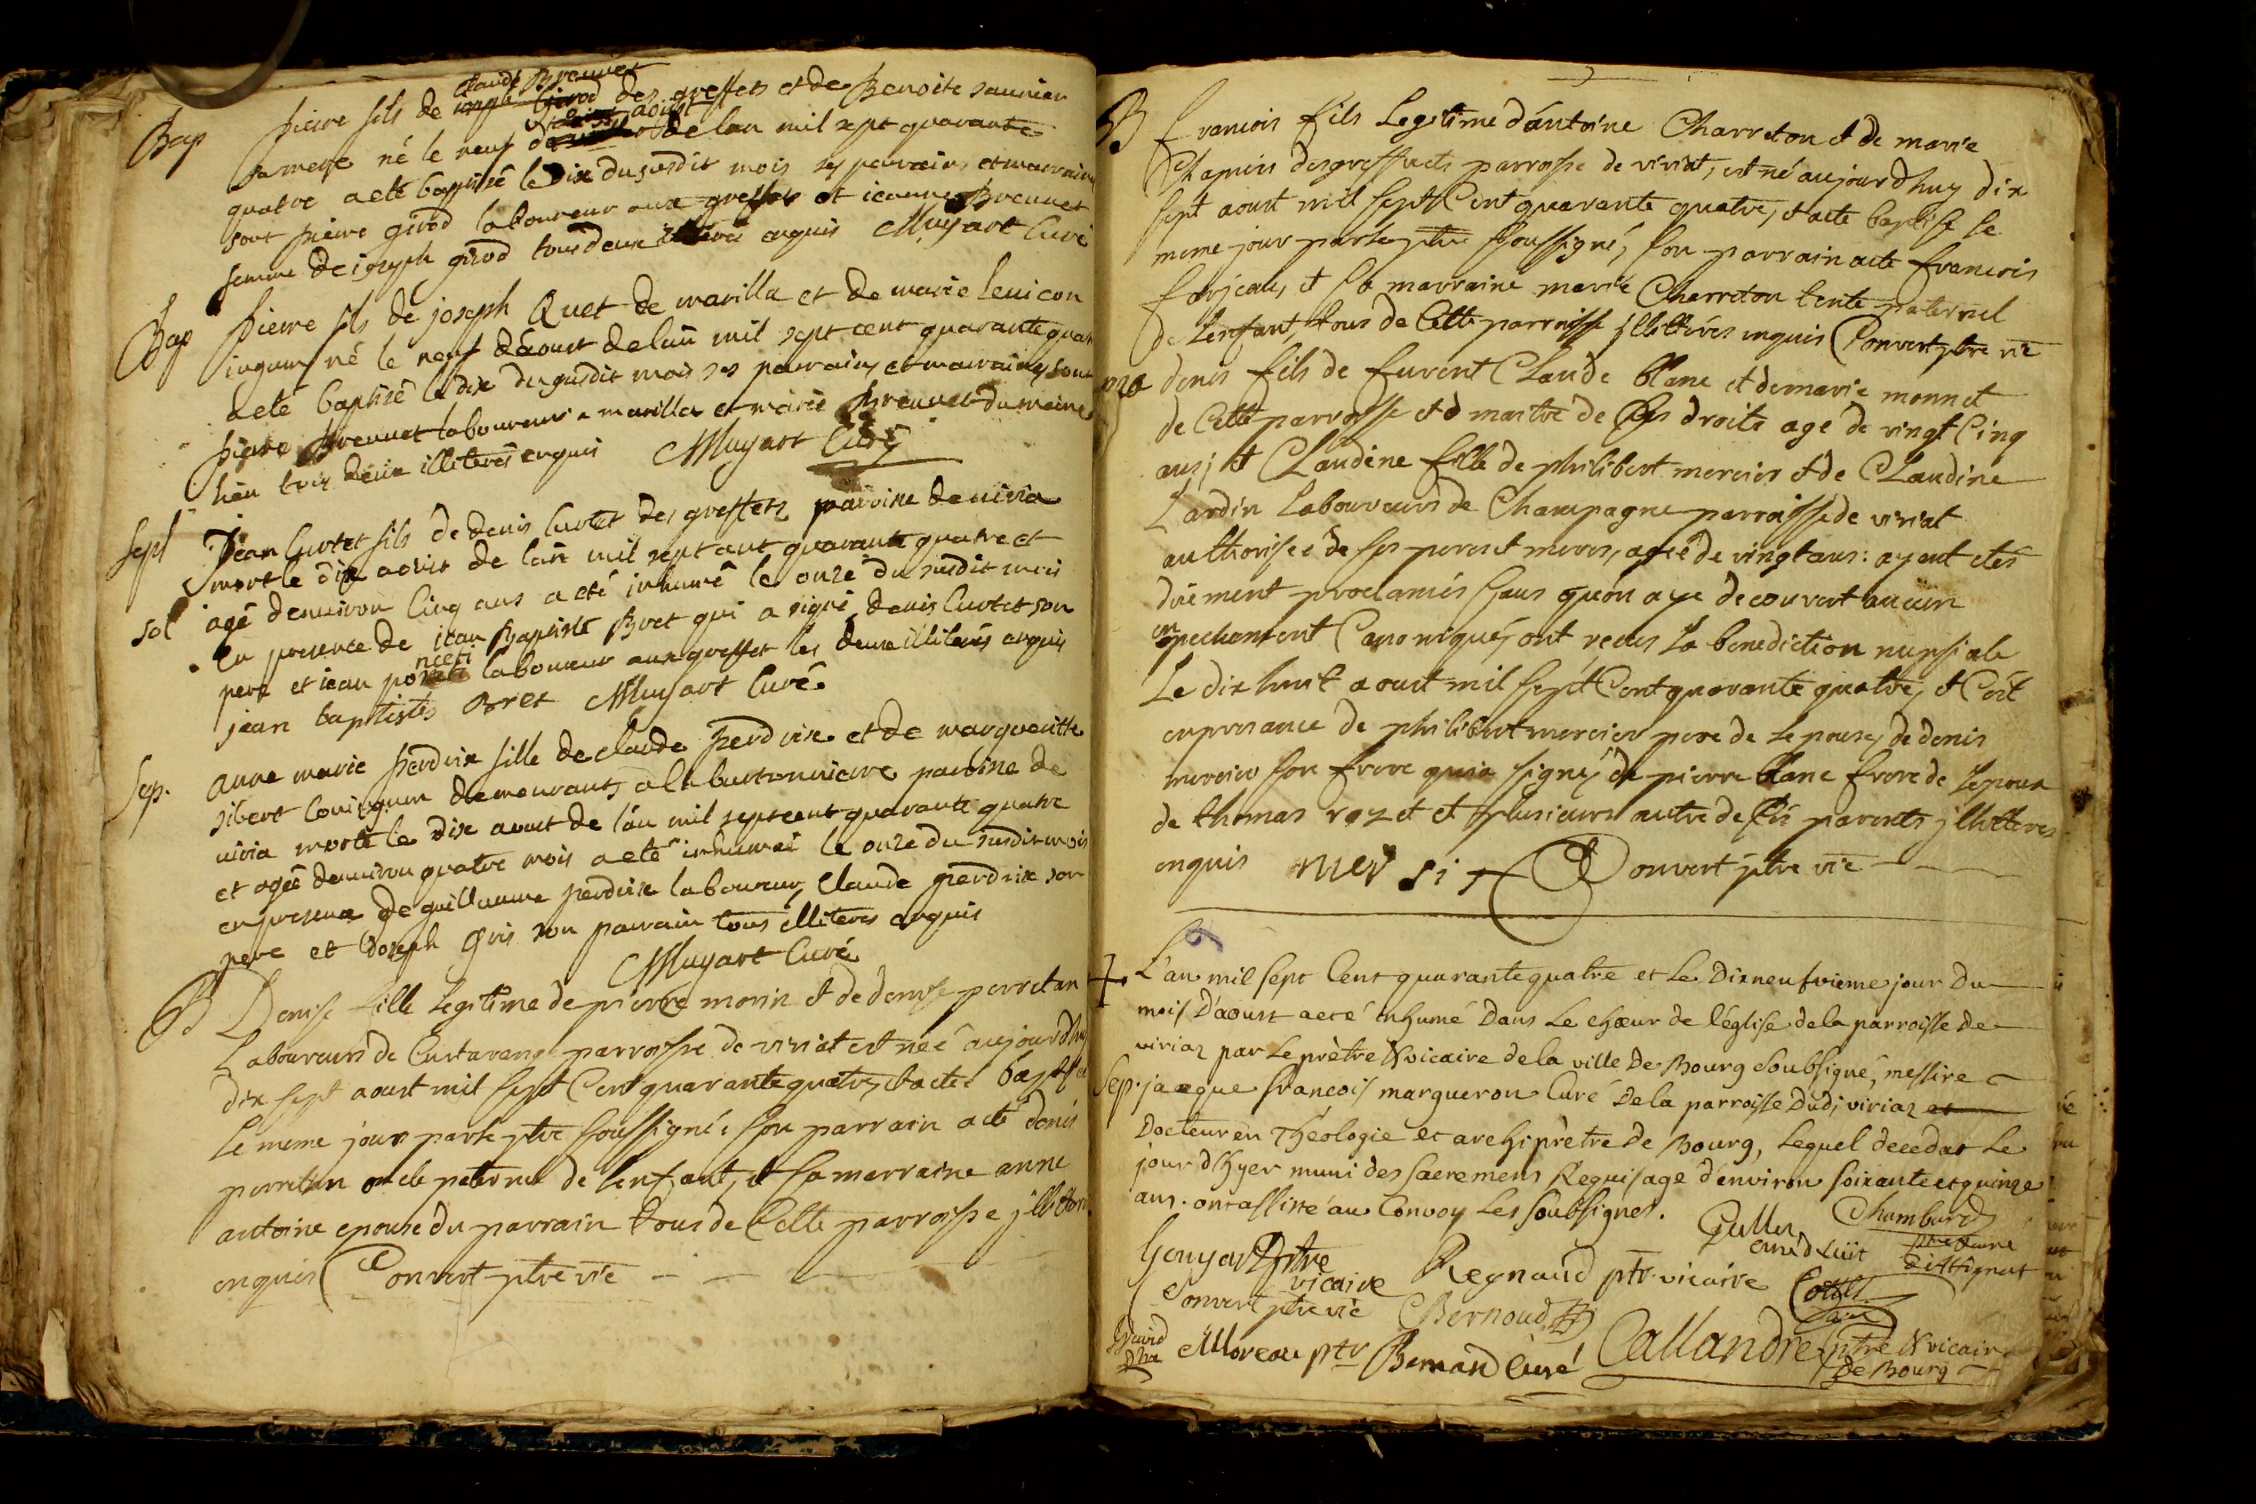 claude Brevuet
Bap pierre fils de joseph Girod des greffets et de Benoite saunier
aoust
sa mere né le neuf de lan mil sept quarante
quatre a eté baptisé le Dix du susdit mois ses parrains et marraine
sont pierre girod laboureur aux greffets et jeanne Brevuet
femme de joseph girod tous deux enquis Muyart Curé
Bap pierre fils de joseph Quet de marilla et de marie
né le neuf d'aoust de lan mil sept cent quarante quatre
a eté baptisé le dix du susdit mois ses parrains et marraines sont
pierre Brevuet laboureur a marilla et marie Brevuet du meme
lieu tous deux illiterés enquis Muyart Curé
Sept Jean Curtet fils de denis Curtet des greffets parroisse de viria
mort le dix aoust de lan mil sept cent quarante quatre et
sol agé denviron Cinq ans a eté inhumé le onze du susdit mois
En presence de jean Baptiste Bret qui a signé denis Curtet son
pere et jean laboureur aux greffets les deux illiterés enquis
jean baptistes Bret Muyart Curé
Sep. anne marie perdrix fille de claude perdrix et de margueritte
sibert demeurants a la parroisse de
viria morte le dix aoust de lan mil sept cent quarante quatre
et agée denviron quatre mois a eté inhumée le onze du susdit mois
en presence de guillaume perdrix laboureur, claude perdrix son
pere et joseph son parrain tous illiteres enquis
Muyart Curé
B Denise fille legitime de pierre morin et de denise perretan
Laboureurs de Curtarange parroisse de viriat est neé aujourdhuy
dix sept aoust mil sept Cent quarante quatre, et a eteé baptisée
Le meme jour par le ptre soussigné, son parrain a eté denis
perretan oncle paternel de lenfant, et sa marraine anne
antoine epouse du parrain tous de Cette parroisse jlliterés
enquis Convert ptre vie
B francois fils Legitime dántoine Charreton et de marie
Chapuis des greffets parroisse de viriat, est né aujourdhuy dix
sept aoust mil sept Cent quarante quatre, et a eté baptisé le
meme jour par le ptre soussigné, son parrain a eté francois
forjean, et sa marraine marie Charreton tente paternel
de Lenfant, tous de Cette parroisse jlliterés enquis Convert ptre vie
denis fils de furent Claude blanc et de marie monnet
de Cette parroisse et d maitre de ses droits agé de vingt Cinq
ans; et Claudine fille de philibert mercier et de Claudine
Lardin Laboureurs de Champagne parroisse de viriat
authorisée de ses peres et meres, ageé de vingt ans: ayant etés
düement proclamés sans quon aye decouvert aucun
empechement Canonique, ont recus la benediction nupsiale
Le dix huit aoust mil sept Cent quarante quatre, et Cést
en presance de philibert mercier pere de Lepouse, de denis
mercier son frere qui a signé, de pierre blanc frere de Lepoux
de thomas rozet et plusieurs autre de parents jlliteres
enquis mersi Convert ptre vie
9
+ L'an mil sept Cent quarante quatre et Le Dixneufvieme jour Du
mois D'aoust a eté inhumé Dans Le chœur de l'église de la parroisse de
viriaz par Le prètre & vicaire de la ville De Bourg soubsigné, messire
Sep. jacque francois margueron Curé De la parroisse Dudj viriaz et
Docteur en Théologie et archiprètre De Bourg, Lequel deceda Le
jour d'hyer muni des sacremens Requis agé d'environ soixante et quinze
ans. ont assisté au Convoy Les soubsignés.
Gouyat Ptre vicaire Regnaud ptr. vicaire Chambard
Convert ptre vie Bernoud
Moreau ptr Bernard Curé Callandre ptre & vicaire
De Bourg